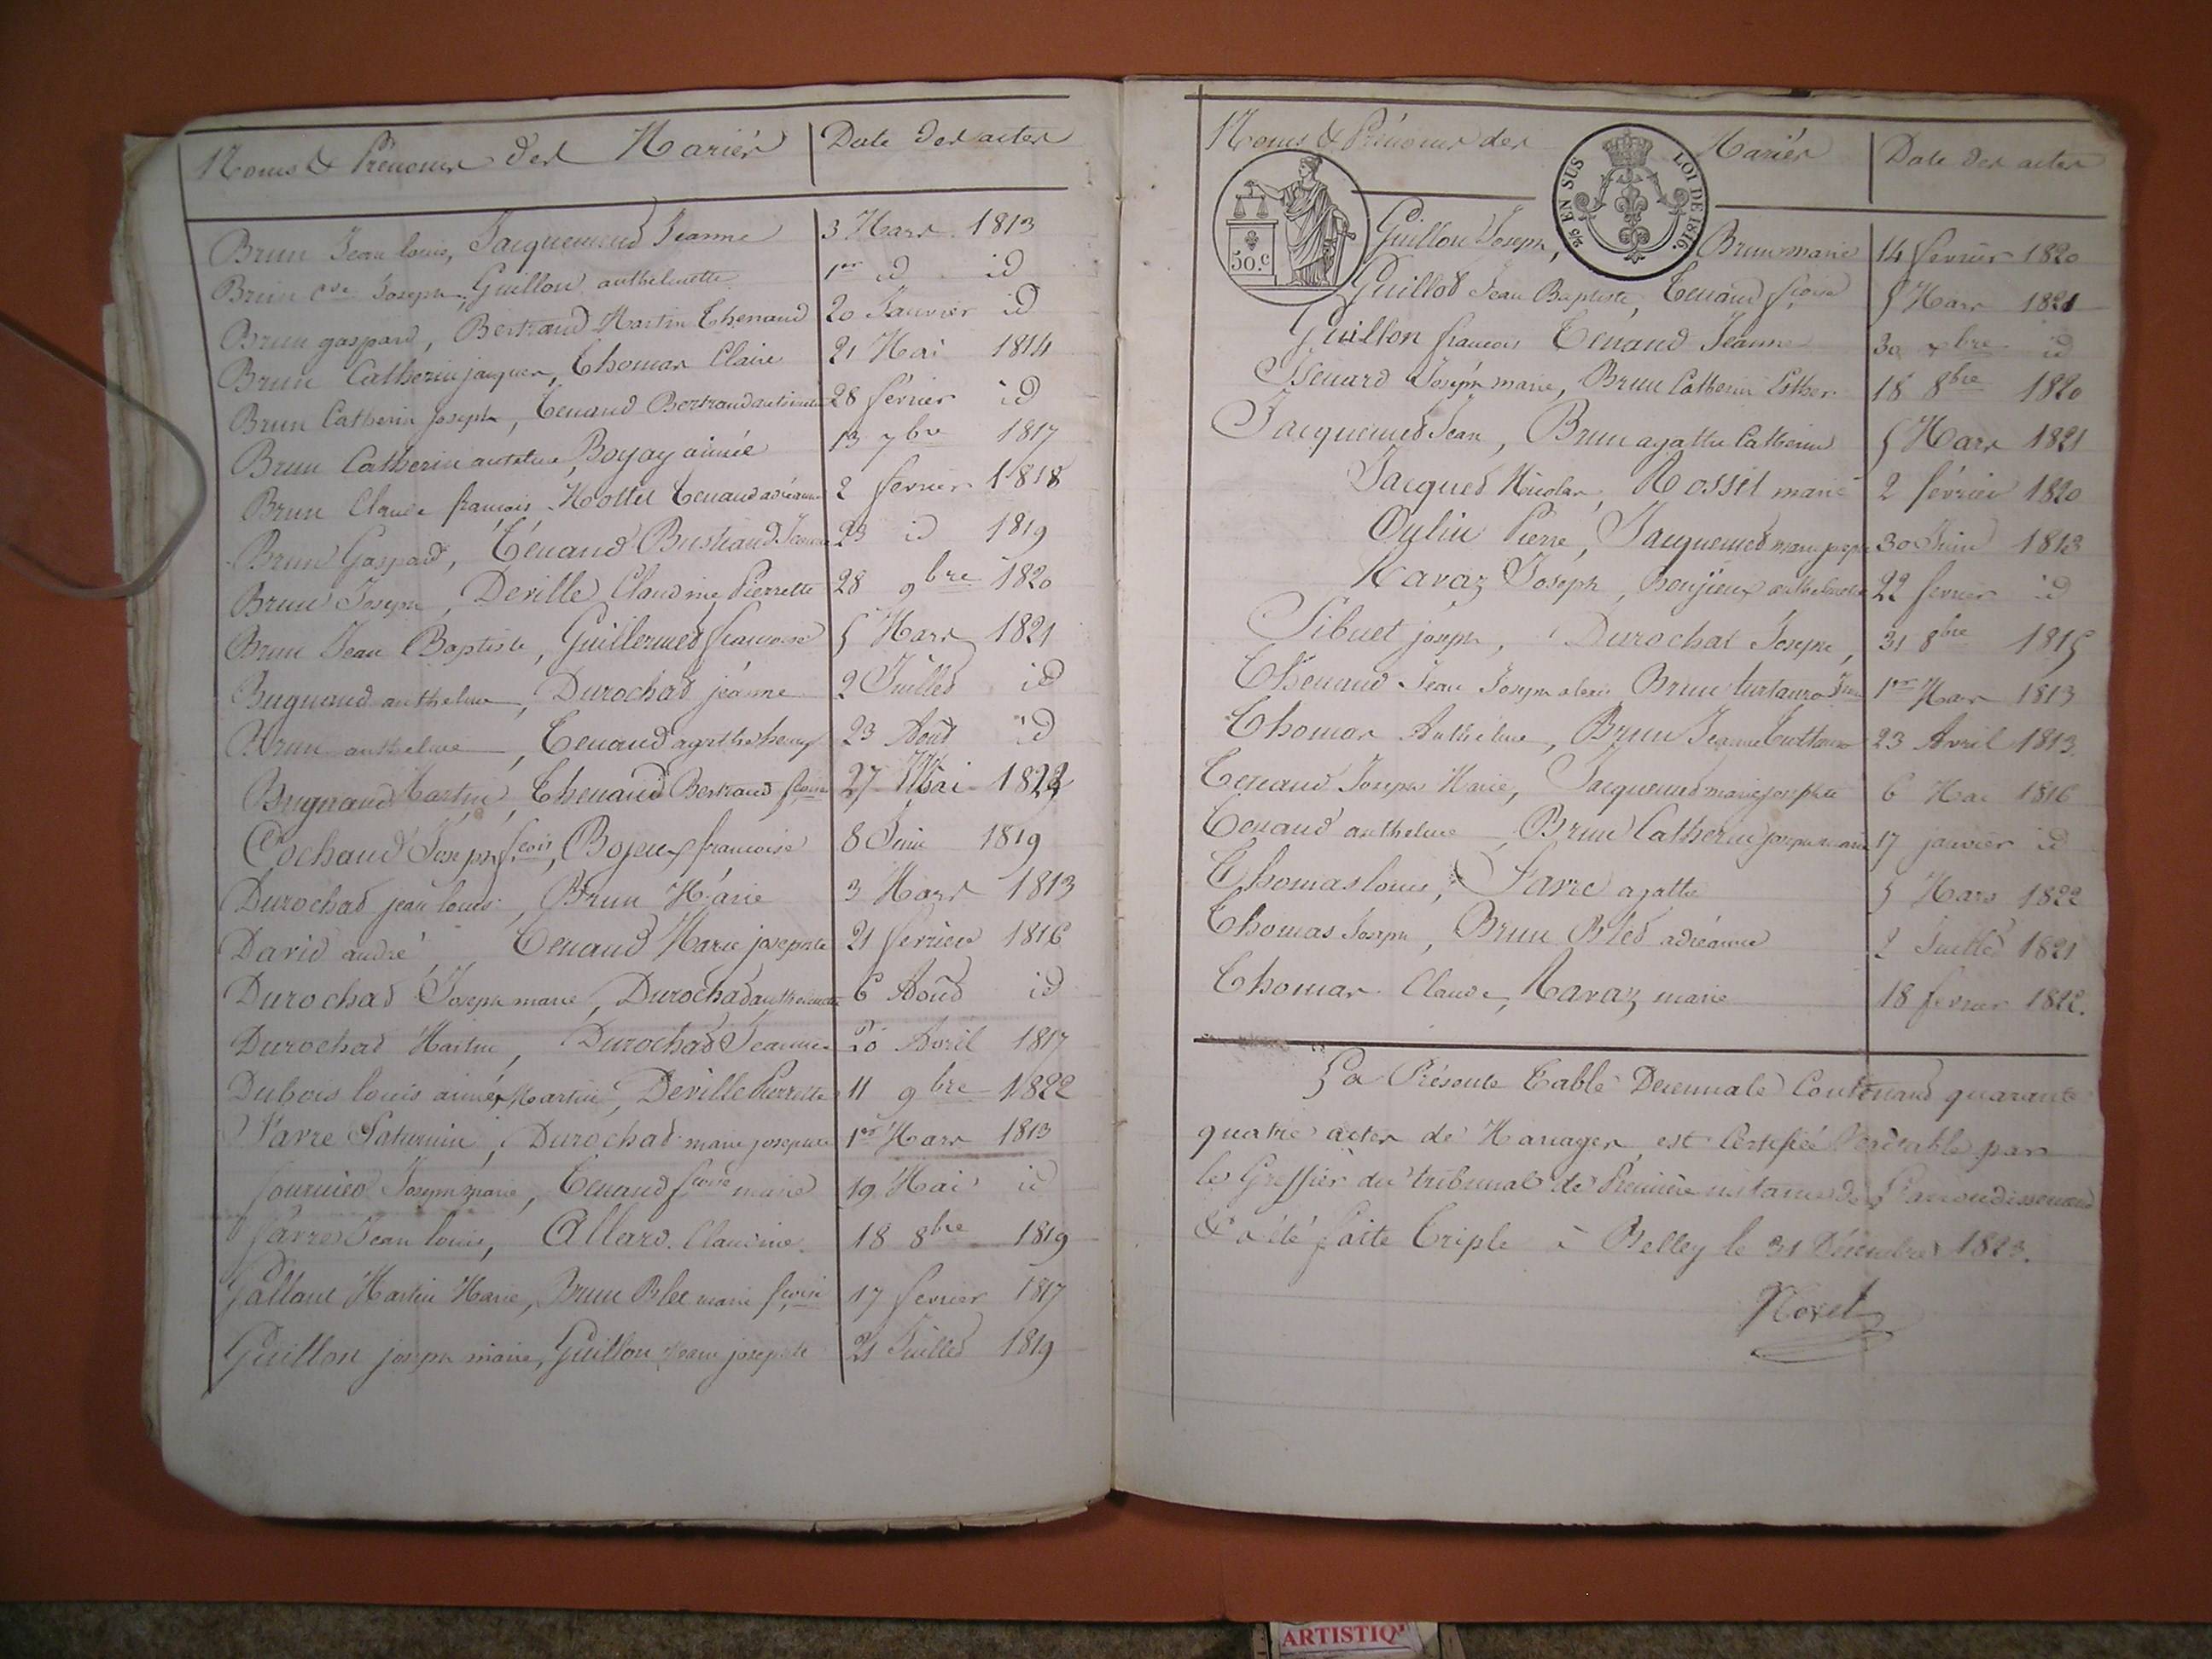 Noms & Prénoms des Mariés Date des actes
Brun Jean louis, Jacquemed Jeanne 3 Mars 1813
Brun Joseph, Guillon anthelmette 1er id id
Brun gaspard, Bertrand Martin Thenaud 20 Janvier id
Brun Catherin jacques, Thomas Claire 21 Mai 1814
Brun Catherin Joseph, Tenand Bertrand 28 février id
Brun Catherin antelme, Boyay aimée 13 7bre 1817
Brun Claude françois Mollet Tenaud adréanne 2 fevrier 1818
Brun Gaspard, Ténand 23 id 1819
Brun Joseph, Deville Claudine Pierrette 28 9bre 1820
Brun Jean Baptiste, Guillermet françoise 5 Mars 1821
Bugnand anthelme, Durochat jeanne 2 Juillet id
Brun anthelme, Tenaud agathe 23 Août id
Bugnaud Martin, Thenaud Bertrand fçoise 27 Mai 1822
Cochaud Joseph fçois, Bojeux francoise 8 Juin 1819
Durochat jean louis, Brun Marie 3 Mars 1813
David andré, Tenaud Marie josephte 21 fevrier 1816
Durochat Joseph marie, Durochat 6 Août id
Durochat Martin, Durochat Jeanne Avril 1817
Dubois louis aimé Martin, Deville Pierrette 11 9bre 1822
Favre Saturnin, Durochat marie josephte 1er Mars 1813
fournier Joseph marie, Tenaud fçoise marie 19 Mai id
favre Jean louis, Allard Claudine 18 8bre 1819
Gallant Martin Marie, Brun Blet marie fçoise 17 fevrier 1817
Guillon joseph marie, Guillon marie josephte 21 Juillet 1819
Noms & Prénoms des Mariés Date des actes
50.c
2/5 EN SUS LOI DE 1816.
Guillon Joseph, Brun marie 14 fevrier 1820
Guillot Jean Baptiste, Tenaud fçoise 5 Mars 1821
Guillon francois Ténand Jeanne 30 7bre id
Joseph marie, Brun Catherin Esther 18 8bre 1820
Jacquemed Jean, Brun agathe Catherin 5 Mars 1821
Jacquet Nicolas, Rosset marie 2 février 1820
Pierre, Jacquemed marie josephte 30 Juin 1813
Ravaz Joseph, Bonjieux anthelmette 22 fevrier id
Sibuet joseph, Durochat Josephe, 31 8bre 1815
Thénaud Jean Joseph alexis Brun 1er Mars 1813
Thomas Anthelme, Brun Jeanne 23 Avril 1813
Tenaud Joseph Marie, Jacquemed marie josephte 6 Mai 1816
Tenaud anthelme, Brun Catherin joseph marie 17 janvier id
Thomas louis, Favre agathe 5 Mars 1822
Thomas Joseph, Brun Blet adréanne 2 Juillet 1821
Thomas Claude, Ravaz marie 18 fevrier 1822.
La Présente Table Décennale Contenand quarante
quatre actes de Mariages, est Certifiée Véritable par
le Greffier du tribunal de Première instance de L'arrondissemend
& a été faite Triple à Belley le 31 Décembre 1823.